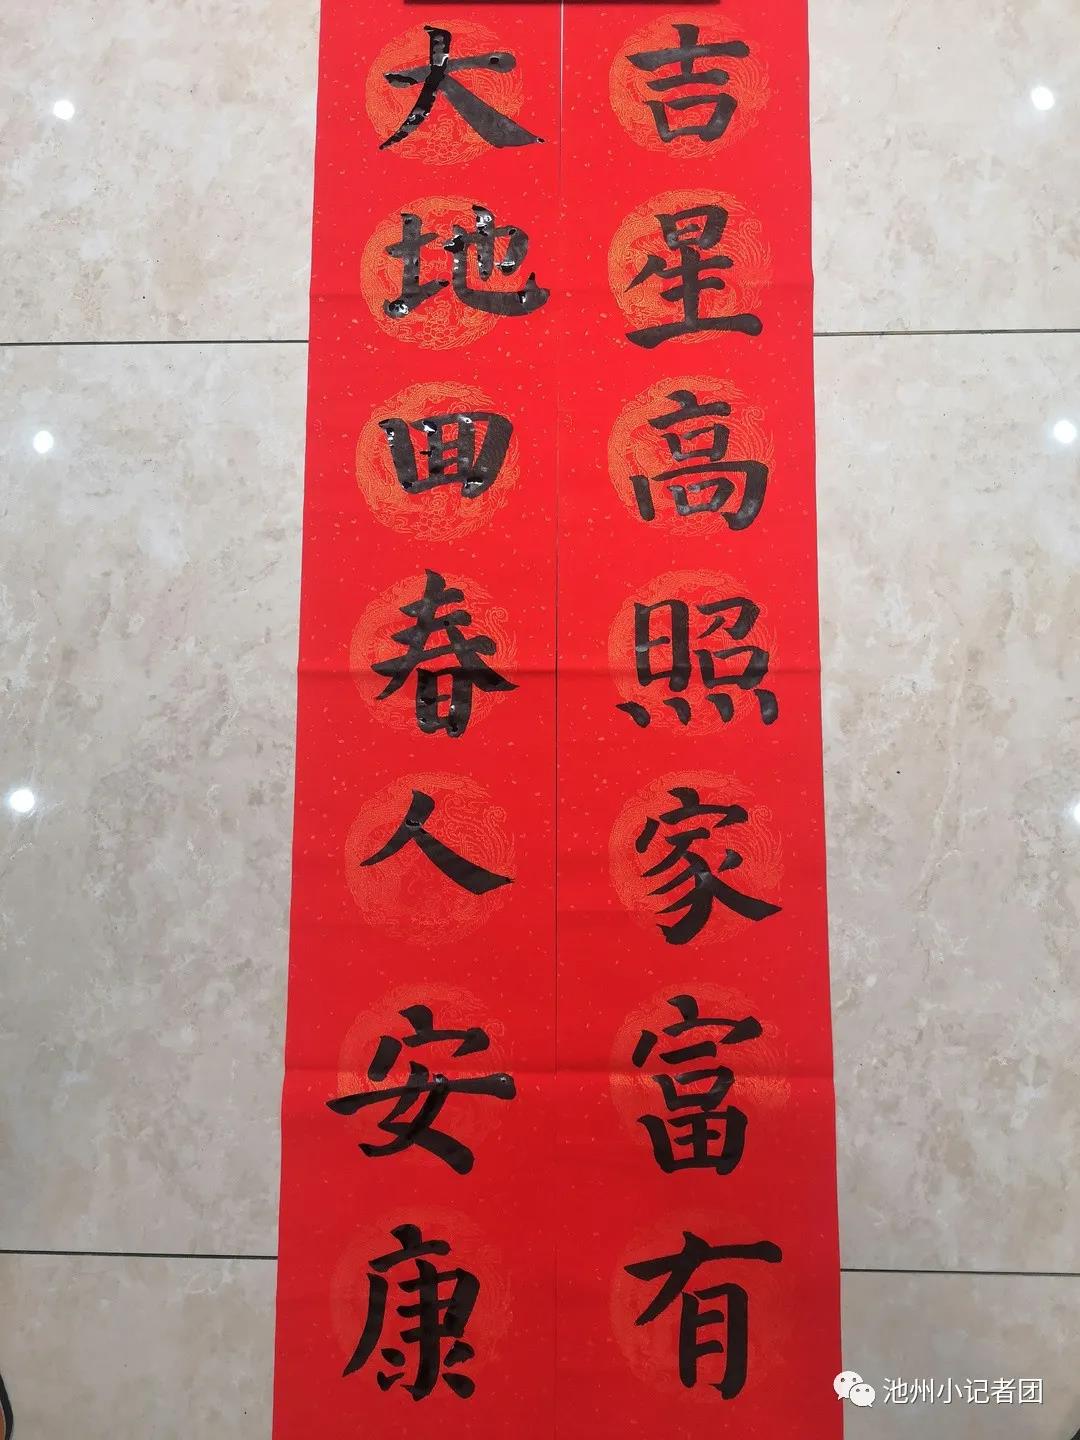 吉星高照家富有
大地回春人安康
池州小记者团